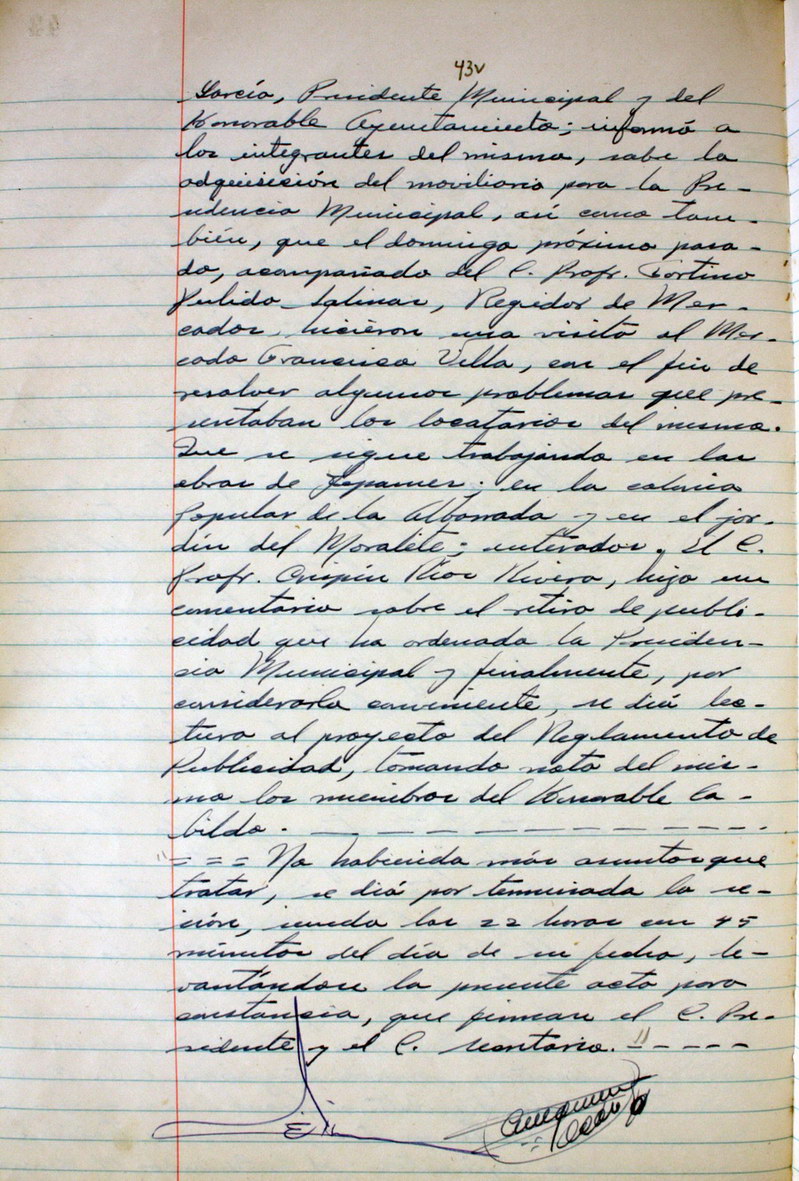 43v
García, Presidente Municipal y del
Honorable Ayuntamiento; informó a
los integrantes del mismo, sobre la
adquisición del moviliario para la Pre-
sidencia Municipal, así como tam-
bién, que el domingo próximo pasa-
do, acompañado del C. Profr. Fortino
Pulido Salinas, Regidor de Mer-
cados, hicieron una visita al Mer-
cado Francisco Villa, con el fin de
resolver algunos problemas que pre-
sentaban los locatarios del mismo.
Que se sigue trabajando en las
obras de Jepames; en la colonia
Popular de la Albarrada y en el jar-
dín del Moralete; enterados. El C.
Profr. Crispín Ríos Rivera, hizo un
comentario sobre el retiro de publi-
cidad que ha ordenado la Presiden-
cia Municipal y finalmente, por
considerarlo conveniente, se dió lec-
tura al proyecto del Reglamento de
Publicidad, tomando nota del mis-
mo los miembros del Honorable Ca-
bildo. - - - - - - - - - - -
" = = = No habiendo más asuntos que
tratar, se dió por terminada la se-
sión, siendo las 22 horas con 45
minutos del día de su fecha, le-
vantándose la presente acta para
constancia, que firman el C. Pre-
sidente y el C. Secretario. " - - - -